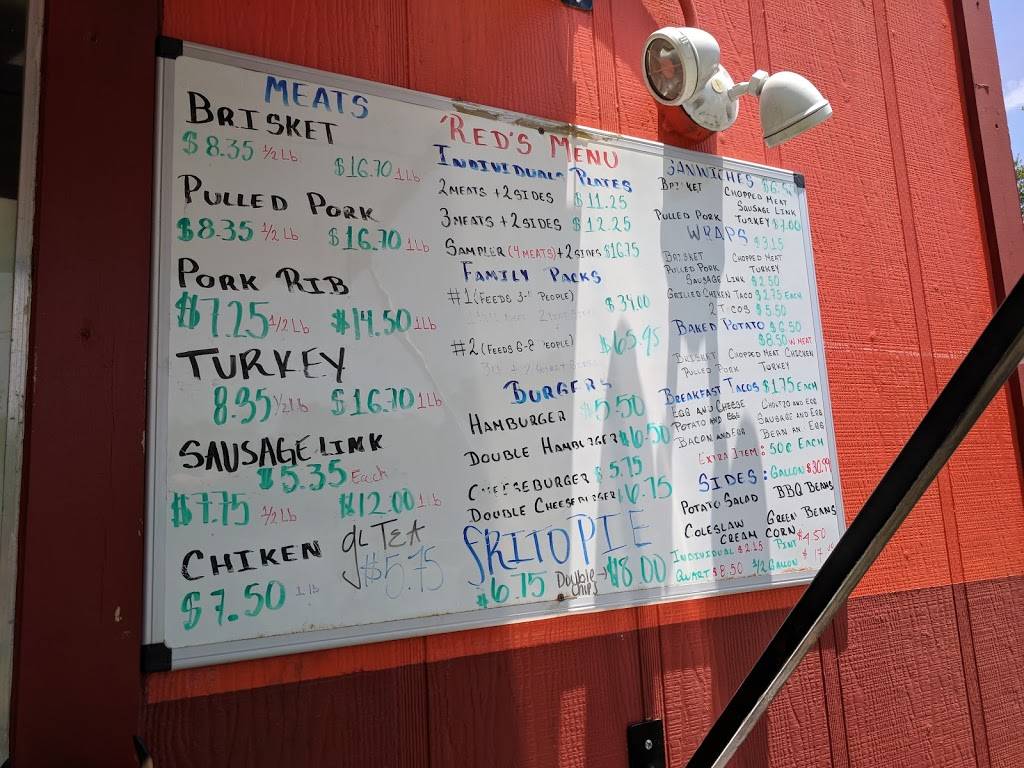 MEATS
BRISKET
$8.35 1/2 Lb
$16.70 1Lb
PULLED PORK
$8.35 1/2 Lb $16.70 1Lb
PORK RIB
$7.25 1/2 Lb $14.50 1Lb
TURKEY
8.35 1/2 Lb $16.70 1Lb
SAUSAGE LINK
$5.35 Each
$7.75 1/2 Lb $12.00 1Lb
CHIKEN
$7.50 1 lb
gL TEA
$5.75
'RED'S MENU
INDIVIDUAL PLATES
2 MEATS + 2 SIDES $11.25
3 MEATS + 2 SIDES $12.25
SAMPLER (4 MEATS) + 2 SIDES $16.75
FAMILY PACKS
#1 (FEEDS PEOPLE) $34.00
#2 (FEEDS 6-8 PEOPLE) $65.95
BURGERS
HAMBURGER $5.50
DOUBLE HAMBURGER $6.50
CHEESEBURGER $5.75
DOUBLE CHEESEBURGER $6.75
FRITO PIE
$6.75 Double Chips → $8.00
SANWICHES
BRISKET CHOPPED MEAT
SAUSAGE LINK
PULLED PORK TURKEY $7.00
WRAPS $3.15
BRISKET CHOPPED MEAT
PULLED PORK TURKEY
SAUSAGE LINK $2.50
GRILLED CHICKEN TACO $2.75 EACH
2 TACOS $5.50
BAKED POTATO $6.50
$8.50 W MEAT
BRISKET CHOPPED MEAT CHICKEN
PULLED PORK TURKEY
BREAKFAST TACOS $1.75 EACH
EGG AND CHEESE CHORIZO AND EGG
POTATO AND EGG SAUSAGE AND EGG
BACON AND EGG BEAN AN EGG
EXTRA ITEM: 50¢ EACH
SIDES: GALLON $30.99
POTATO SALAD BBQ BEANS
COLESLAW GREEN BEANS
CREAM CORN
INDIVIDUAL $2.15 PINT $4.50
QUART $8.50 1/2 GALLON